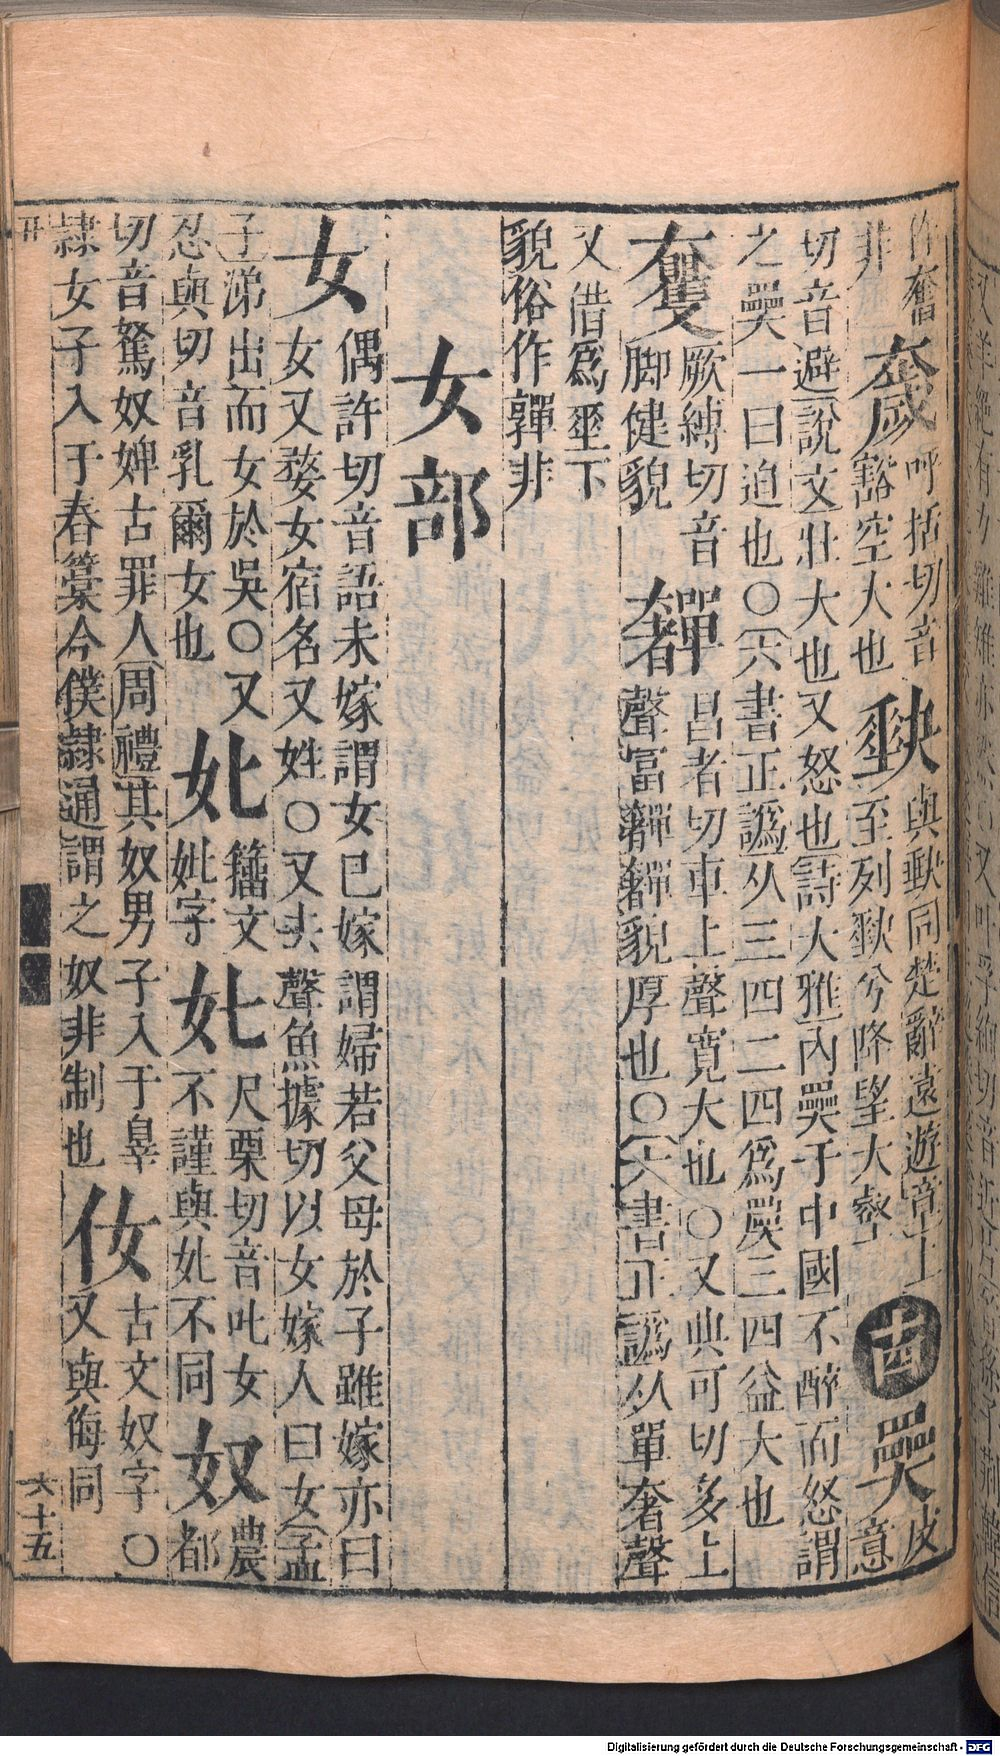 作奮
非
奯
呼括切音
豁空大也
同楚辭遠遊章上
至列兮降望大壑
十四
奰
皮
意
切音避說文壯大也又怒也詩大雅內奰于中國不醉而怒謂
之奰一曰迫也○六書正譌从三四二四爲奰三四益大也
厥縛切音
脚健貌
奲
昌者切車上聲寬大也○又典可切多上
聲富奲奲貌厚也○六書正譌从單奢聲
又借爲垂下
貌俗作軃非
女部
女
偶許切音語未嫁謂女已嫁謂婦若父母於子雖嫁亦曰
女又婺女宿名又姓○又去聲魚據切以女嫁人曰女孟
子涕出而女於吳○又
忍與切音乳爾女也
𡚧
籀文
妣字
㚰
尺栗切音叱女
不謹與𡚧不同
奴
農
都
切音駑奴婢古罪人周禮其奴男子入于辠
隸女子入于舂藁今僕隸通謂之奴非制也
㚢
古文奴字○
又與侮同
六十五
Digitalisierung gefördert durch die Deutsche Forschungsgemeinschaft - DFG